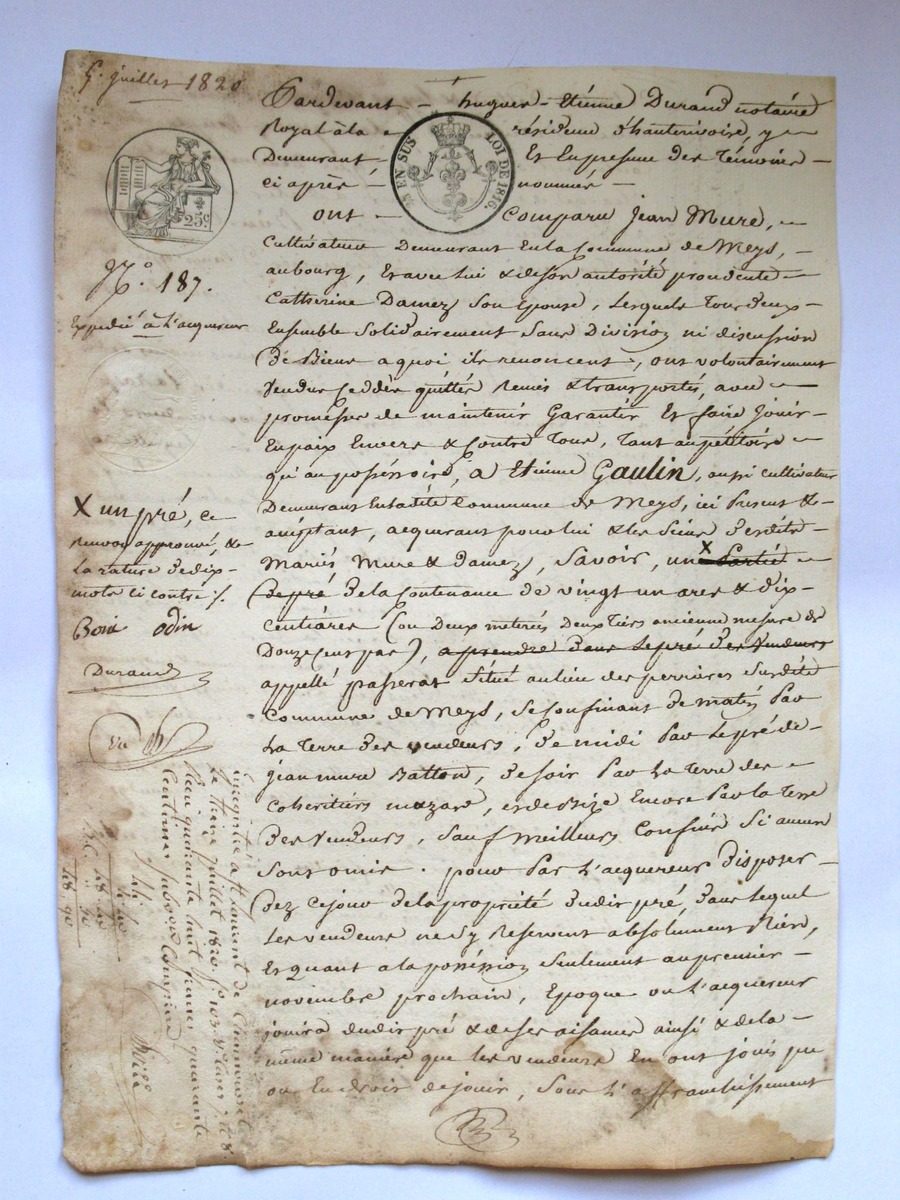 5. juillet 1820
25c
EN SUS
LOI DE 1816.
N.° 187.
Expédié à l'acquereur
X un pré, ce
renvoi approuvé, &
la rature de dix
mots ci contre ./.
Boin Odin
Durand
Pardevant - hugues - Etienne Durand notaire
Royal à la résidence d'hauterivoire, y
Demeurant Et En presence des Témoins
ci après - nommés -
ont - Comparu Jean Mure,
Cultivateur Demeurant En la Commune de Meys,
au bourg, Et avec lui & de son autorité procedente
Catherine Damez Son Epouse, Lesquels Tous deux
Ensemble Solidairement Sans Division ni discussion
de Biens a quoi ils renoncent, ont volontairement
Vendus ceddés quittés remis & transportés, avec
promesse de maintenir Garantir Et faire Jouir
En paix Envers & Contre Tous, Tant au pétitoire
qu'au possessoire, a Etienne Gaulin, aussi cultivateur
Demeurant En ladite Commune de Meys, ici Present &
acceptant, acquerant pour lui & les Siens desdits
Mariés Mure & Damez, Savoir, un X Partie
de pré De la Contenance de vingt un ares & dix
centiares (ou Deux meterés Deux Tiers ancienne mesure de
Douze Cent pas), a prendre Dans Le pré des Vendeurs
appellé passerat situé au lieu des perrieres Susdite
Commune de Meys, Se Confinant de matin Par
La Terre des vendeurs, De midi Par Le pré de
jean mure Batton, de soir Par La Terre des
Coheritiers mazard, et de bize Encore Par la Terre
Des Vendeurs, Sauf Meilleurs Confins Si aucun
Sont omis. pour Par L'acquereur Disposer
Dez Ce jour De la propriété dudit pré, dans Lequel
Les vendeurs ne S'y Reservent absolument Rien,
Et quant a la possession Seulement au premier
novembre prochain, Epoque ou L'acquereur
jouira dudit pré & de ses aisances ainsi & de la
même maniere que les vendeurs En ont jouis pu
ou En droit de jouir, Sous L'affranchissement
Enregistré à St Laurent de Chamousset
Le juillet 1820. f.° 103
quarante huit francs quarante
Centimes Subvention Comprise